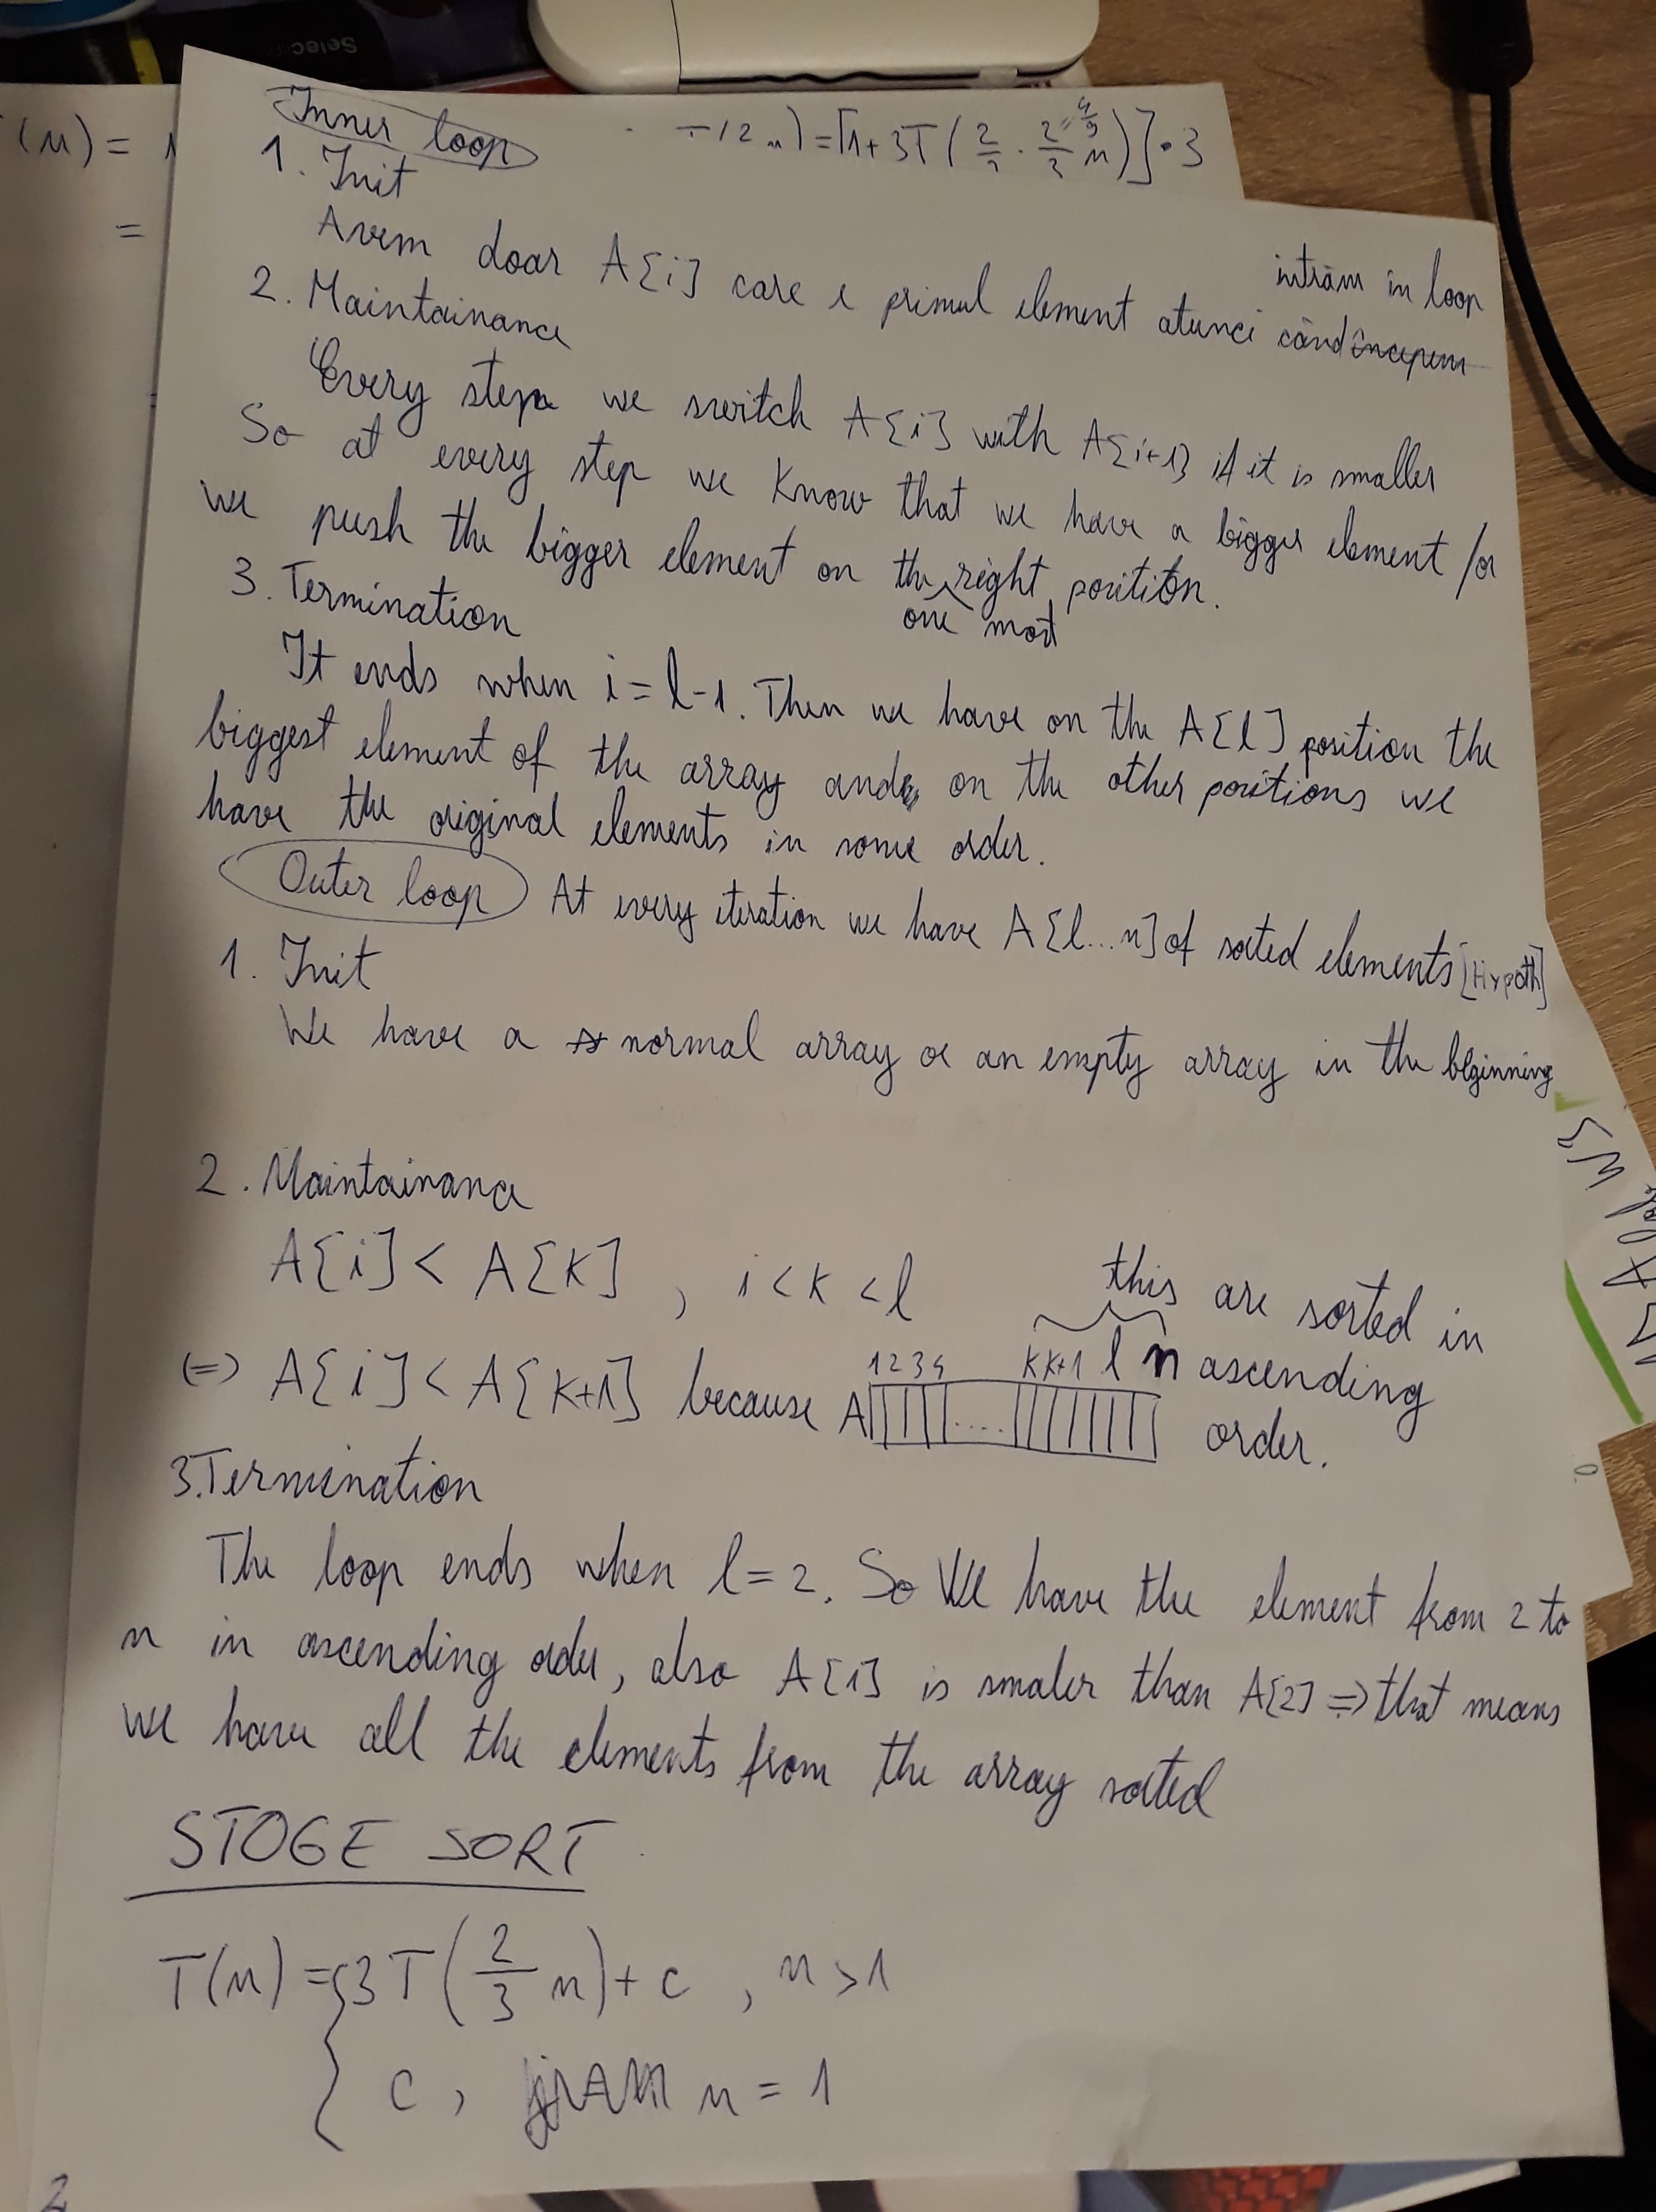 Selec
(n) =
=
Inner loop
T(2 n) = [1+3T(2/3 · 2/3 n)] · 3
= 4/9
1. Init
Avem doar A[i] care e primul element atunci când începem
intrăm în loop
2. Maintainance
Every step we switch A[i] with A[i+1] if it is smaller
So at every step we know that we have a bigger element /or
we push the bigger element on the right position.
one most
3. Termination
It ends when i = l-1. Then we have on the A[l] position the
biggest element of the array and on the other positions we
have the original elements in some order.
Outer loop At every iteration we have A[l...n] of sorted elements [Hypoth]
1. Init
We have a normal array or an empty array in the beginning
2. Maintainance
A[i] < A[k] , i < k < l
this are sorted in
(=) A[i] < A[k+1] because A
1 2 3 4 k k+1 l n ascending
.... order.
3. Termination
The loop ends when l = 2. So We have the element from 2 to
n in ascending order, also A[1] is smaler than A[2] => that means
we have all the elements from the array sorted
STOGE SORT
T(n) = { 3T(2/3 n) + c , n > 1
c , n = 1
2